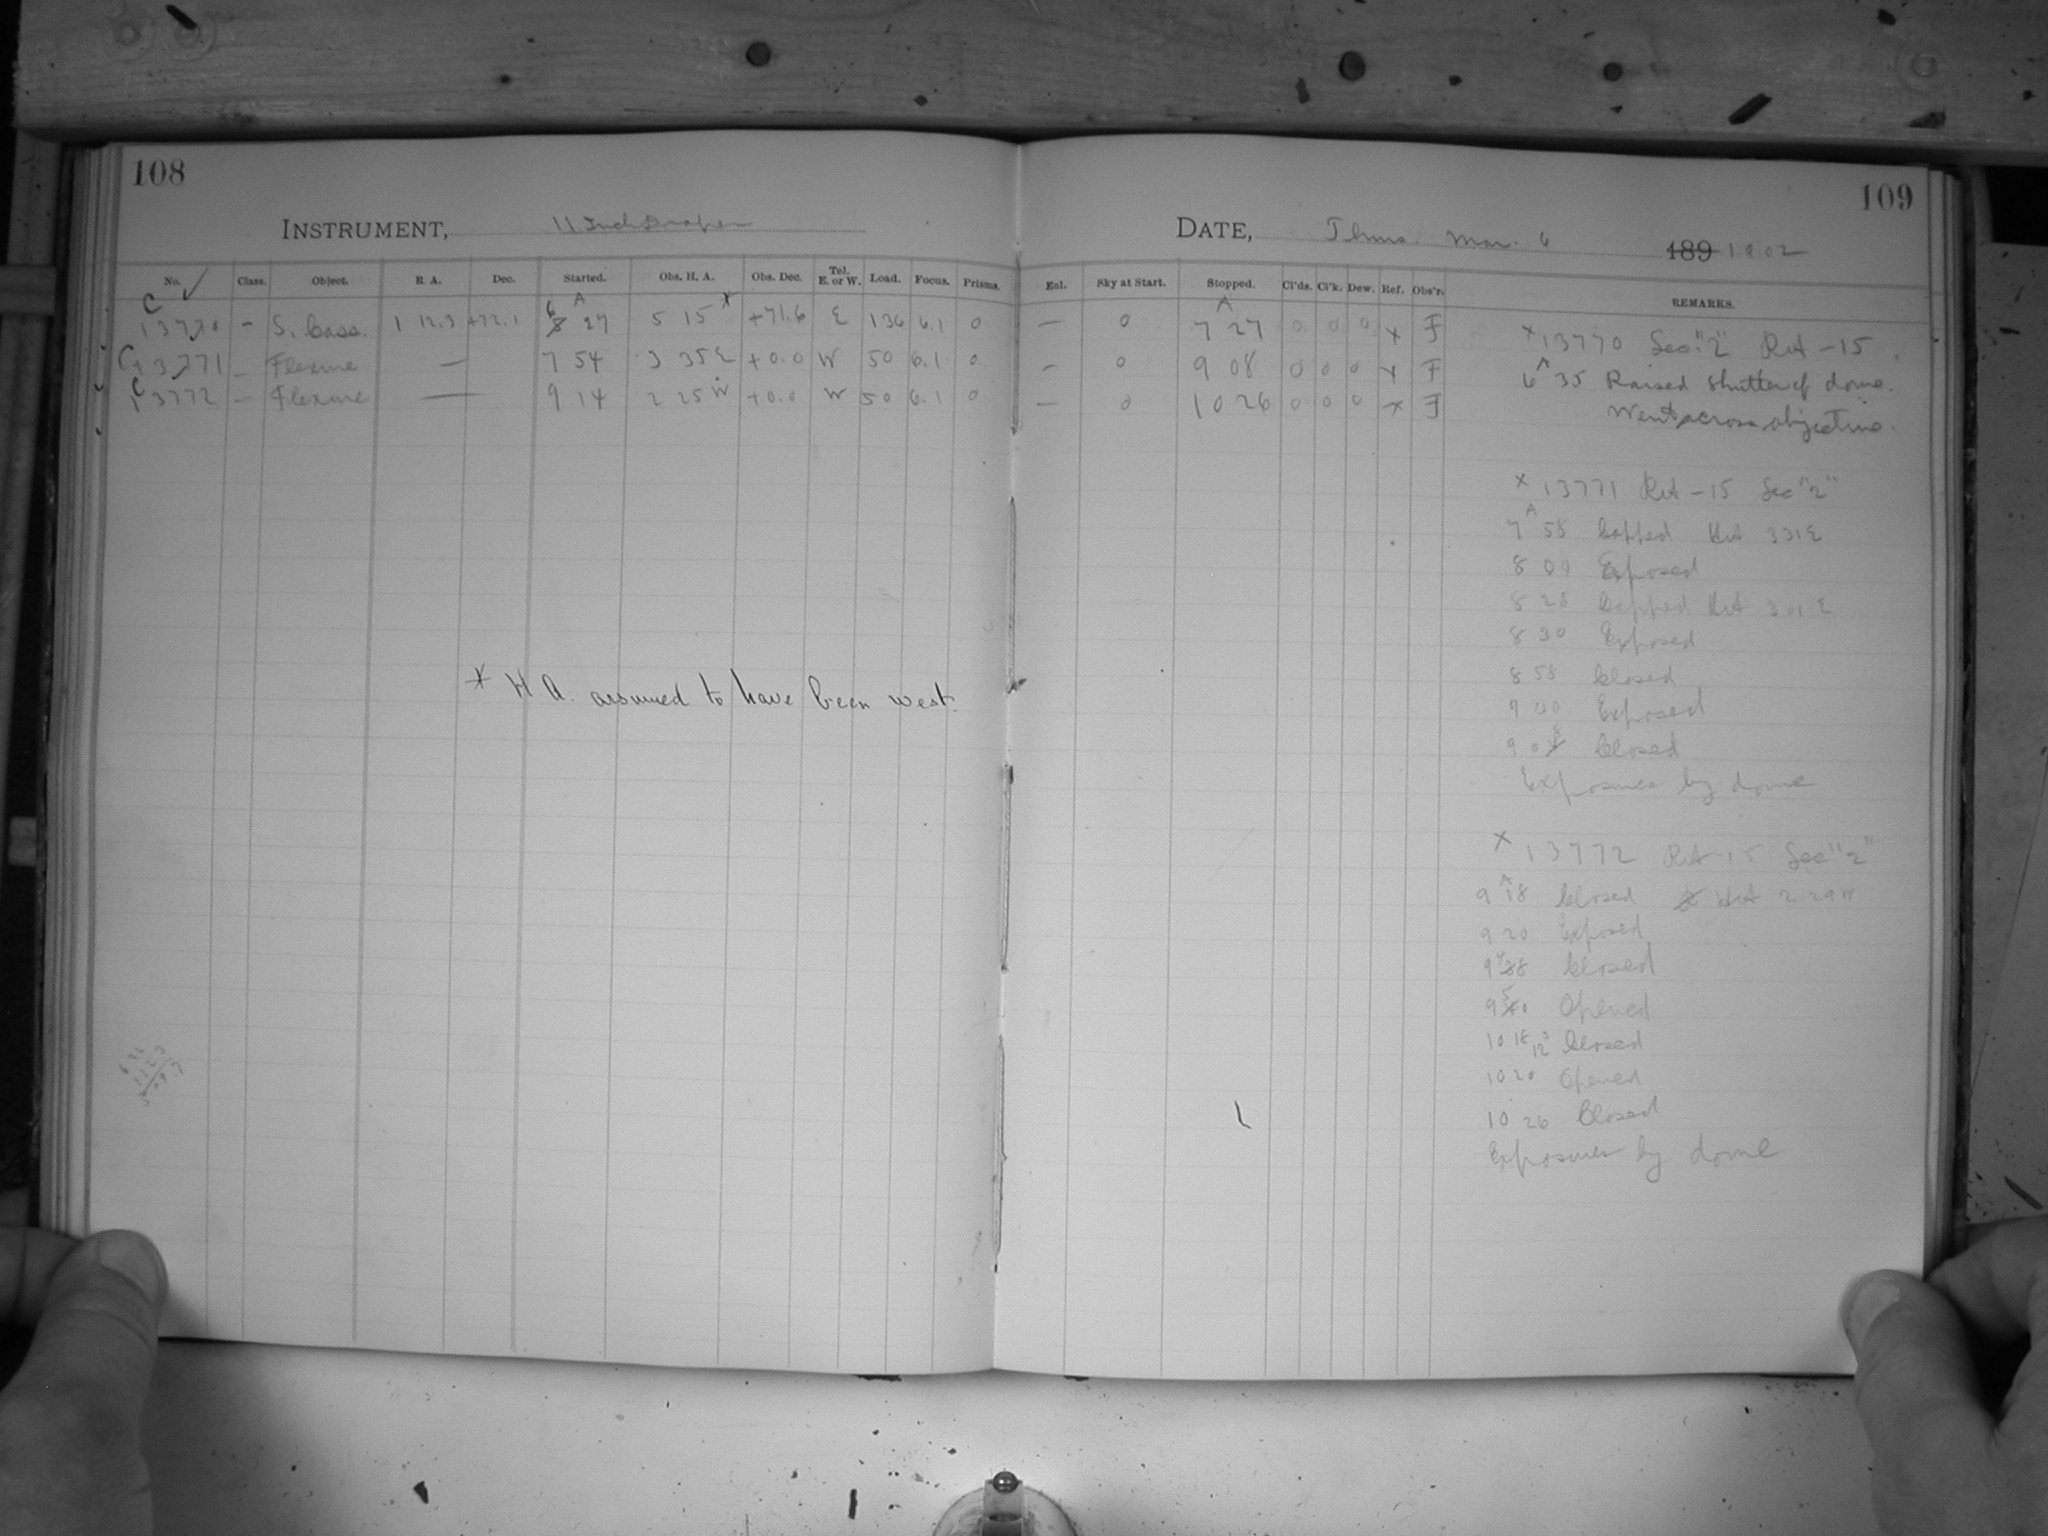 108
INSTRUMENT, 11 Inch Draper
No. ✓ Class. Object. R A. Dec. Started. Obs. H. A. Obs. Dec. Tel. E. or W. Load. Focus. Prisms.
C 13770 - S. Cass. 1 12.3 +72.1 6 A 27 5 15 * +71.6 E 136 6.1 0
C 13771 - Flexure — 7 54 3 35 E +0.0 W 50 6.1 0
C 13772 - Flexure — 9 14 2 25 W +0.0 W 50 6.1 0
* H A. assumed to have been west.
109
DATE, Thurs. Mar. 6 189 1902
Eol. Sky at Start. Stopped. Cl'ds. Cl'k. Dew. Ref. Obs'r. REMARKS.
— 0 7 A 27 0 0 0 x F
— 0 9 08 0 0 0 x F
— 0 10 26 0 0 0 x F
x 13770 Sec. "2" Rit -15
6 A 35 Raised shutter of dome.
Went across objective.
x 13771 Rit -15 Sec "2"
7 A 58 Capped HA 3 31 E
8 09 Exposed
8 28 Capped HA 3 01 E
8 30 Exposed
8 58 Closed
9 00 Exposed
9 08 Closed
Exposures by dome
x 13772 Rit -15 Sec "2"
9 A 18 Closed HA 2 29 W
9 20 Exposed
9 48 Closed
9 50 Opened
10 18 Closed
10 20 Opened
10 26 Closed
Exposures by dome